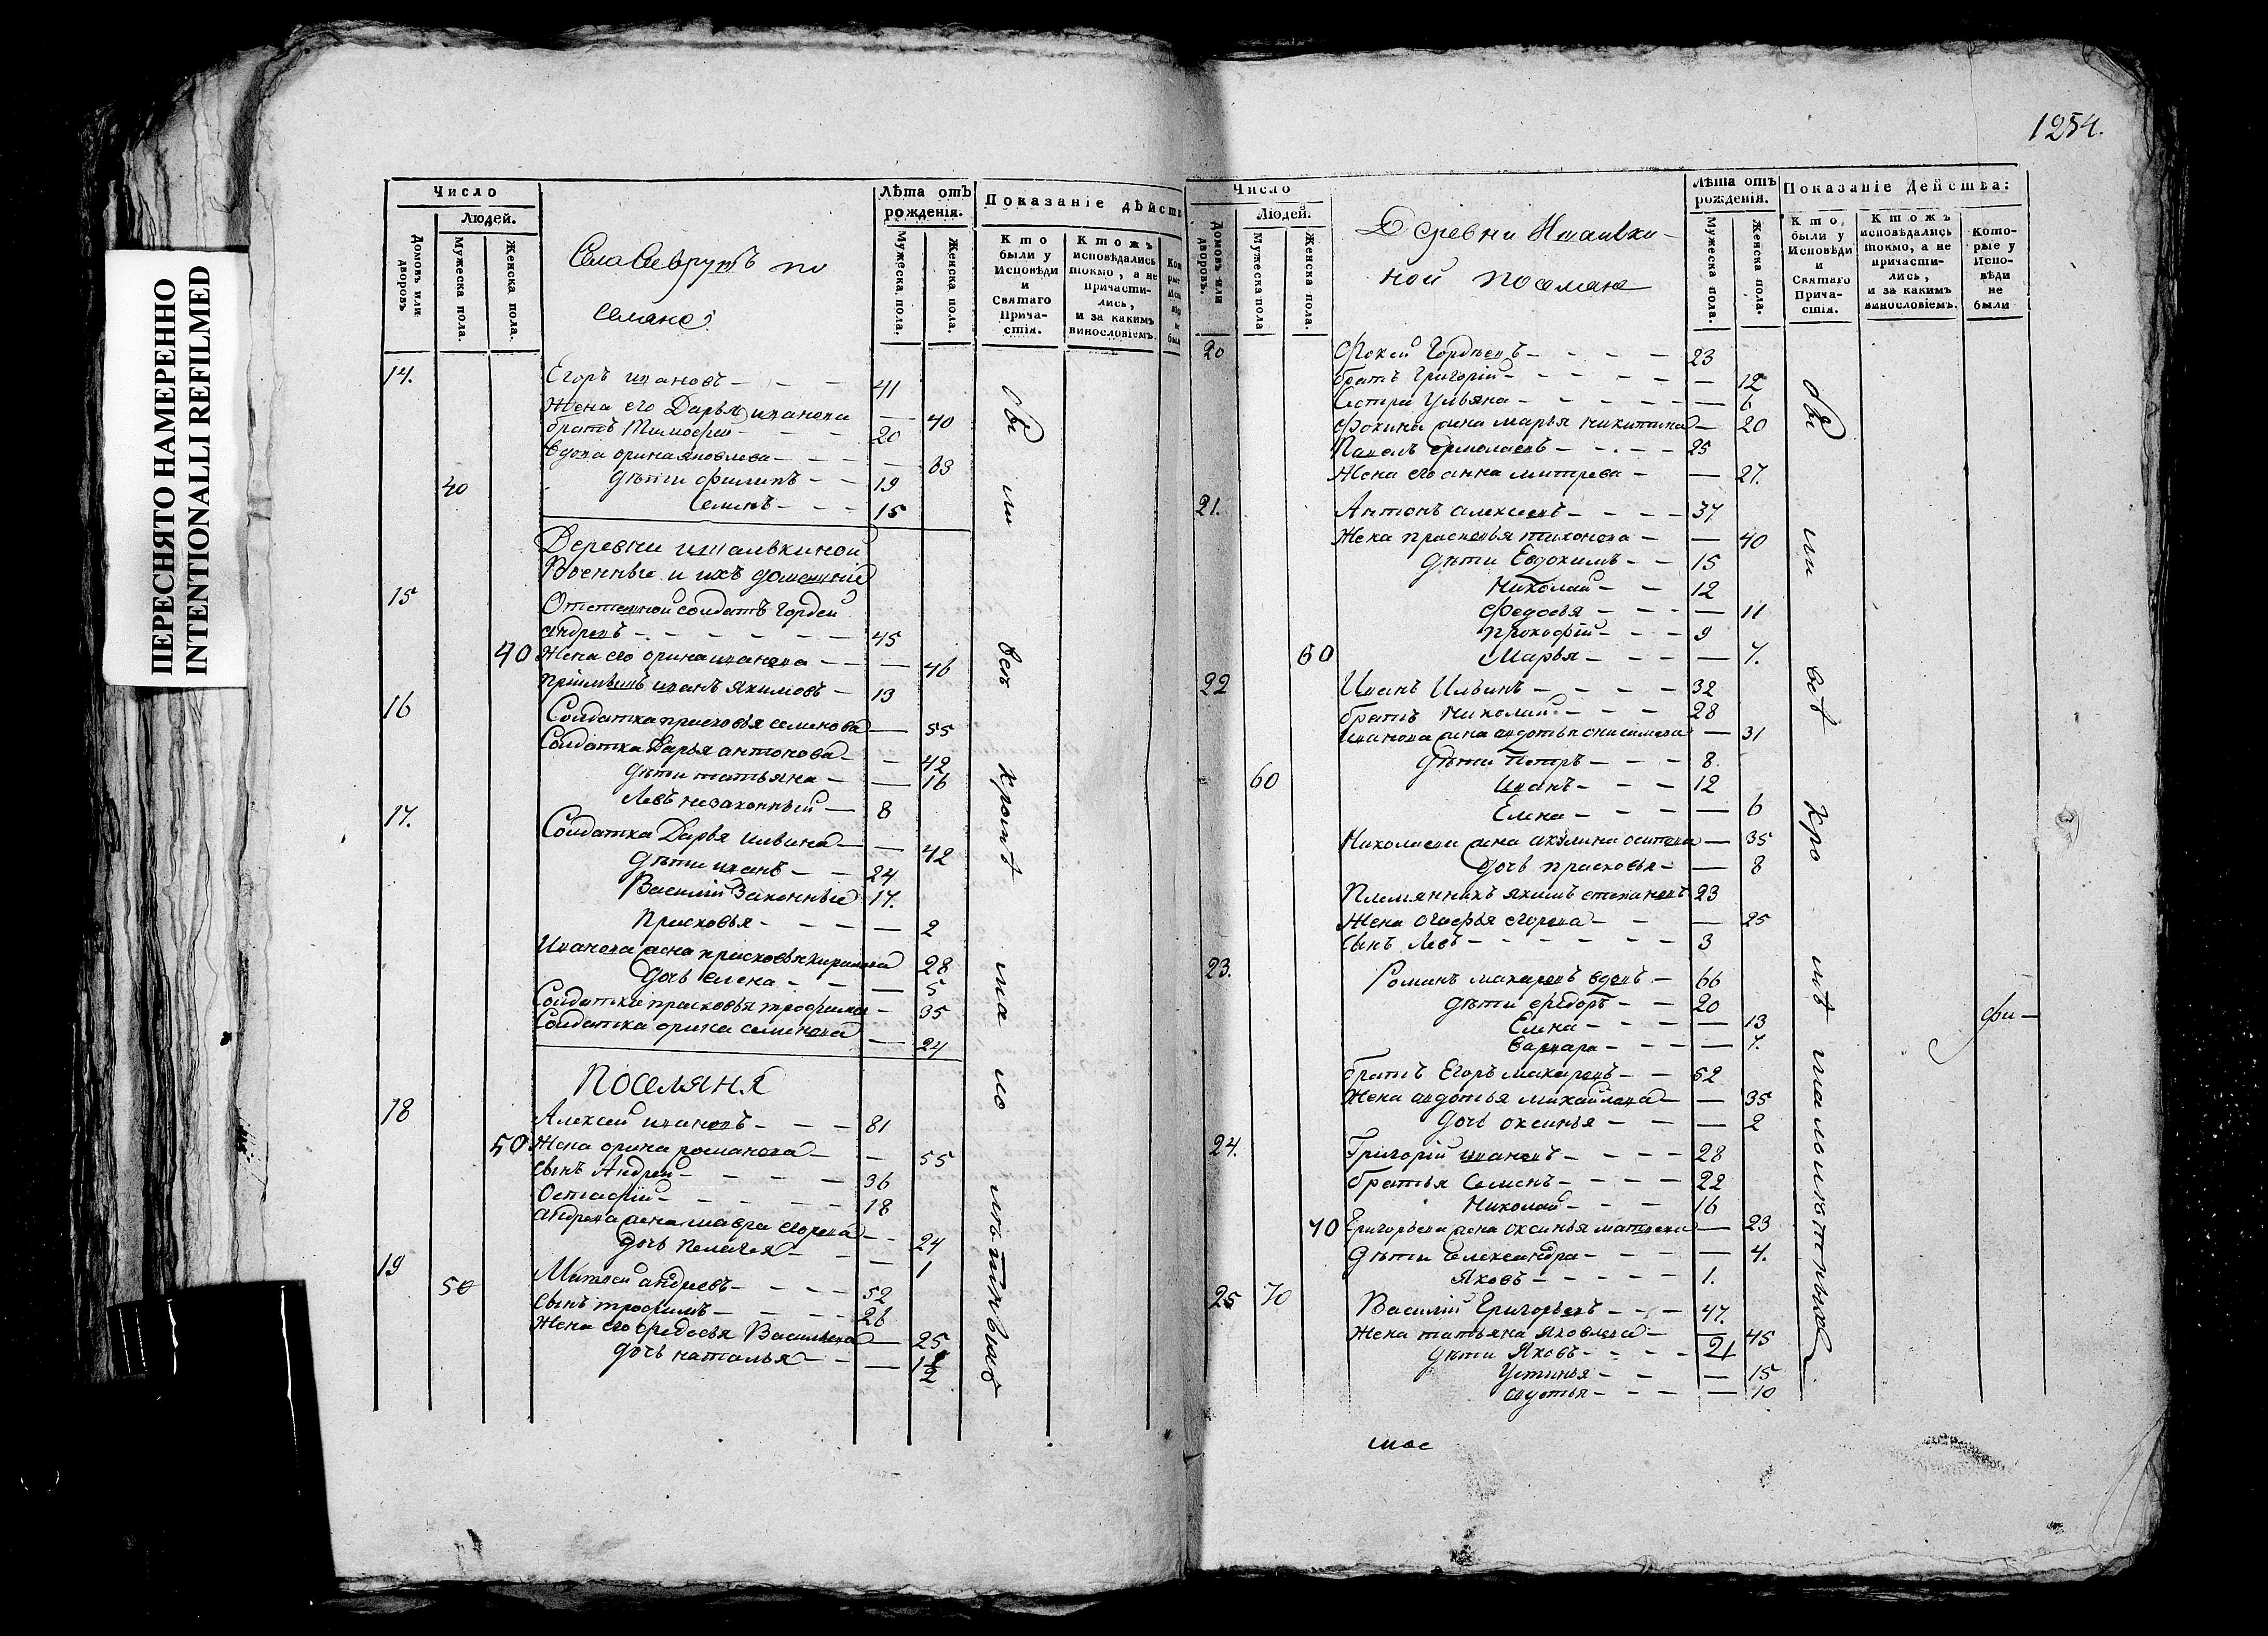 ПЕРЕСНЯТО НАМЕРЕННО
INTENTIONALLI REFILMED
1254.
Число
Людей.
Домовъ или дворовъ
Мужеска пола.
Женска пола.
по
селяне
Лѣта отъ рожденія.
Мужеска пола.
Женска пола.
Показаніе дѣйст
Кто были у Исповѣди и Святаго Причастія.
Ктожъ исповѣдались токмо, а не причастились, и за какимъ винословіемъ.
14.
Егоръ Ивановъ 41
Жена его Дарья Иванова 40
братъ Тимофей 20
вдова орина яковлева
дѣти филипъ 19
40
Семенъ 15
Деревни
Военные и ихъ домашніе
15
Отставной солдатъ Гордей
андреевъ 45
40 Жена его орина иванова 46
пріимышъ иванъ якимовъ 13
16
Солдатка прасковья семенова 55
Солдатка Дарья антонова 42
дѣти татьяна 16
Левъ незаконный 8
17.
Солдатка Дарья ильина 42
дѣти иванъ 24
Василій Законные 17.
Прасковья 2
Иванова жена прасковья 28
дочь елена 5
Солдатка прасковья трофимова 35
Солдатка орина семенова 24
Поселяня
18
Алексей ивановъ 81
50 Жена орина романова 55
сынъ Андрей 36
Остафій 18
андреева жена мавра егорова 24
дочь Пелагея 1
19
50
андреевъ 52
сынъ трофимъ 26
Жена его федосья Васильева 25
дочь наталья 1 1/2
бы
ли
всѣ
кромѣ
ма
ло
лѣтныхъ
Число
Людей.
Домовъ или дворовъ.
Мужеска пола
Женска пола.
Деревни
ной поселяне
Лѣта отъ рожденія.
Мужеска пола.
Женска пола.
Показаніе Действа:
Кто были у Исповѣди и Святаго Причастія.
Ктожъ исповѣдались токмо, а не причастились, и за какимъ винословіемъ.
Которые у Исповѣди не были
20
Фокей Гордѣевъ 23
братъ Григорій 12
Сестра Ульяна 6
Фокина жена марья никитина 20
Павелъ ермолаевъ 25
Жена его анна митрева 27.
21.
Антонъ алексеевъ 37
Жена прасковья тихонова 40
дѣти Евдокимъ 15
Николай 12
Федосья 11
прокофій 9
60 Марья 7.
22
Иванъ Ильинъ 32
братъ Николай 28
Иванова жена авдотья онисимова 31
дѣти Петръ 8
60
иванъ 12
Елена 6
Николаева жена акулина осипова 35
дочь прасковья 8
Племянникъ якимъ степановъ 23
Жена егорова 25
сынъ Левъ 3
23.
Романъ макаровъ вдовъ 66
дѣти федоръ 20
Елена 13
варвара 7.
братъ Егоръ макаровъ 52
Жена авдотья михайлова 35
дочь оксинья 2
24.
Григорій ивановъ 28
братья Семенъ 22
Николай 16
70 Григорьева жена оксинья матвеева 23
дѣти александра 4.
Яковъ 1.
25 70
Василій Григорьевъ 47.
Жена татьяна яковлева 45
дѣти Яковъ 21
Устинья 15
авдотья 10
бы
ли
всѣ
Кро
мѣ
малолѣтныхъ